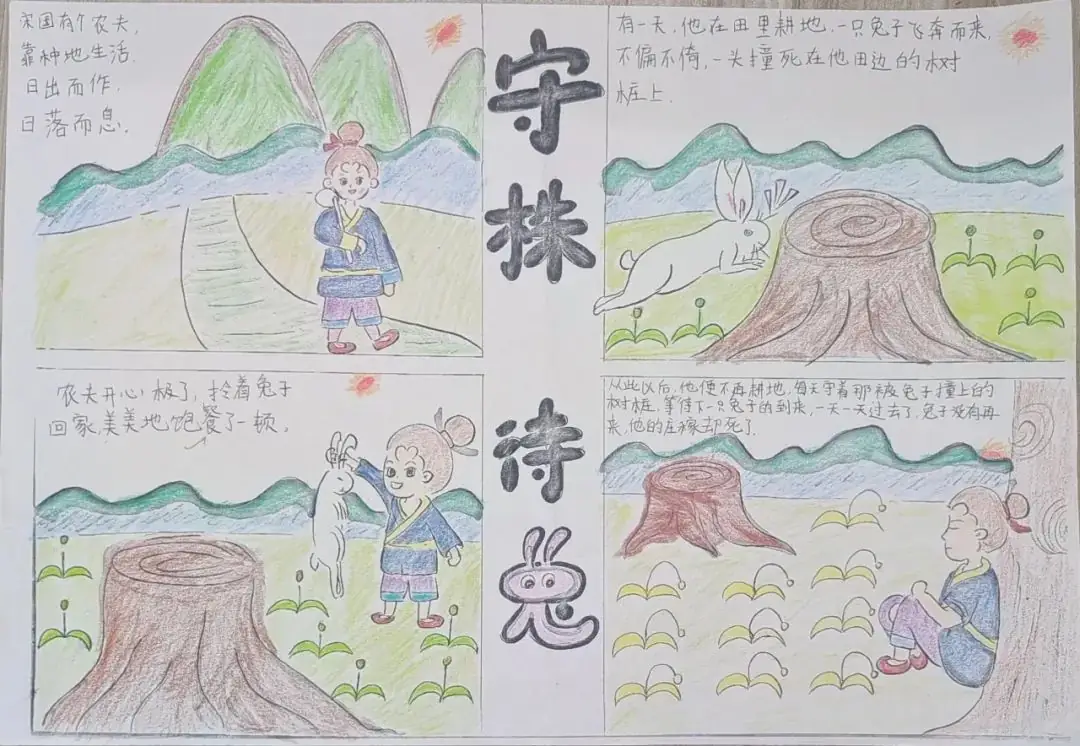 守株待兔
宋国有个农夫,
靠种地生活.
日出而作.
日落而息.
有一天,他在田里耕地.一只兔子飞奔而来,
不偏不倚,一头撞死在他田边的树
桩上.
农夫开心极了,拎着兔子
回家,美美地饱餐了一顿。
从此以后,他便不再耕地,每天守着那被兔子撞上的
树桩,等待下一只兔子的到来,一天一天过去了,兔子没有再
来,他的庄稼却死了.